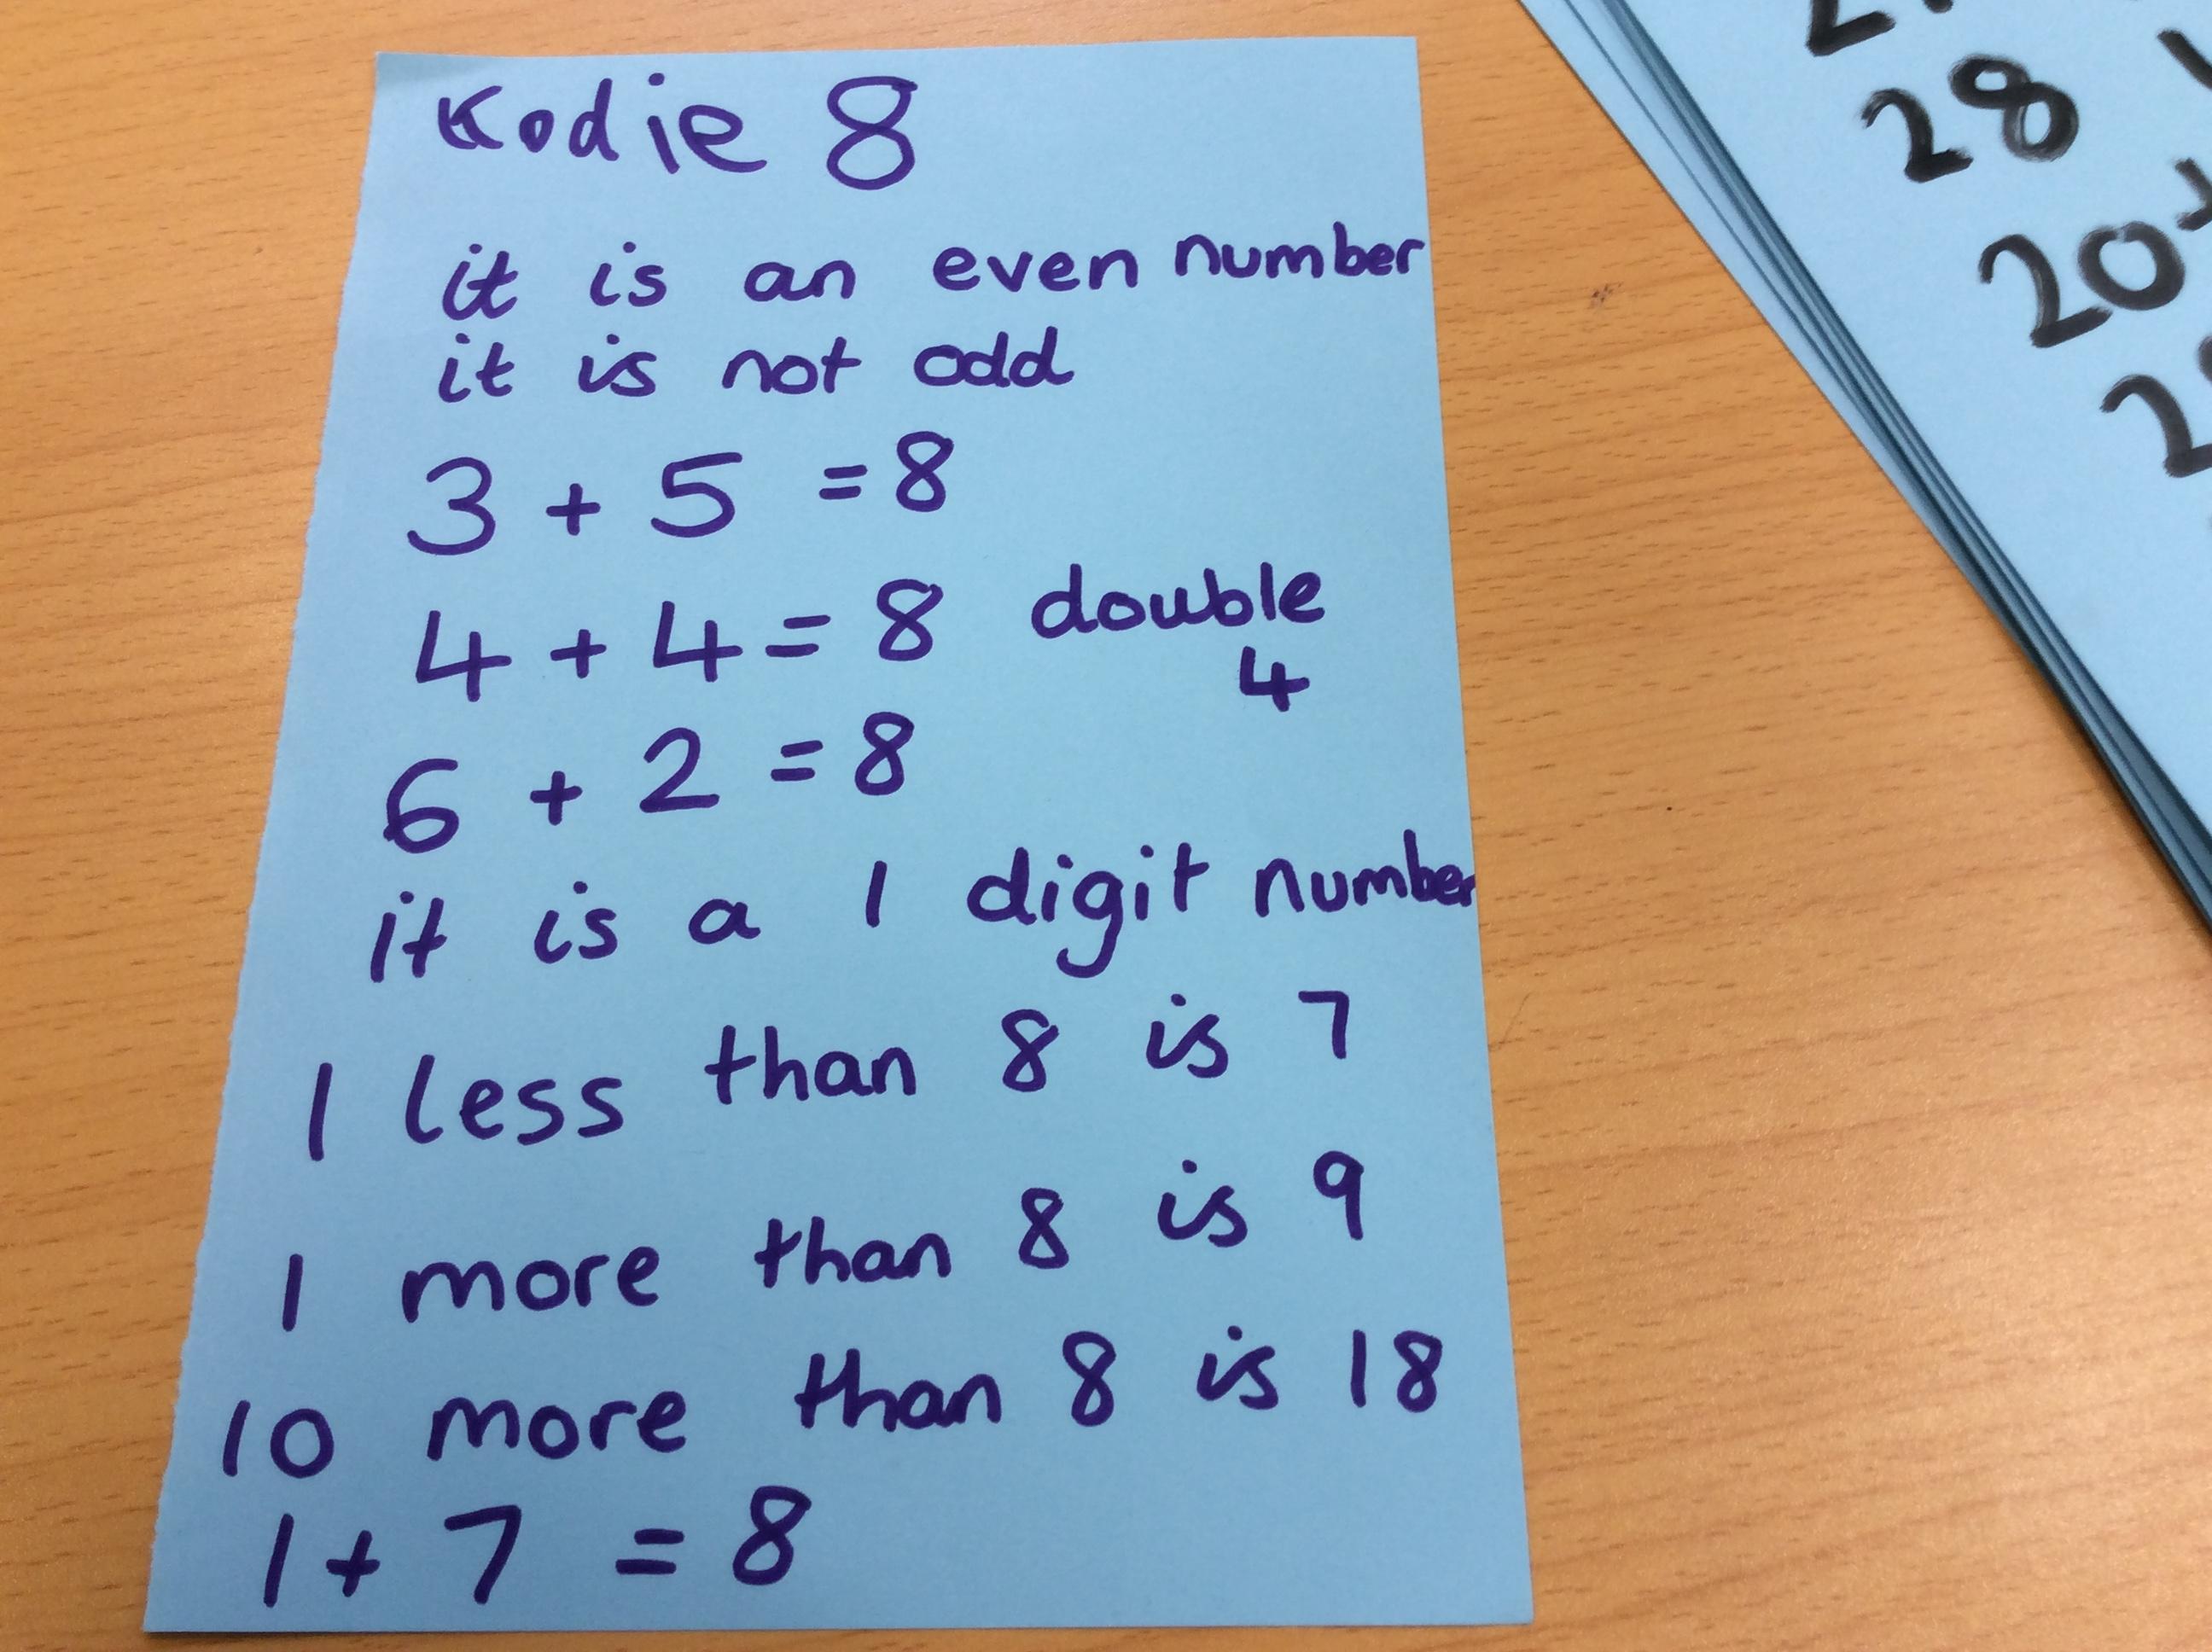 Kodie 8
it is an even number
it is not odd
3 + 5 = 8
4 + 4 = 8 double
4
6 + 2 = 8
it is a 1 digit number
1 less than 8 is 7
1 more than 8 is 9
10 more than 8 is 18
1 + 7 = 8
28
20+